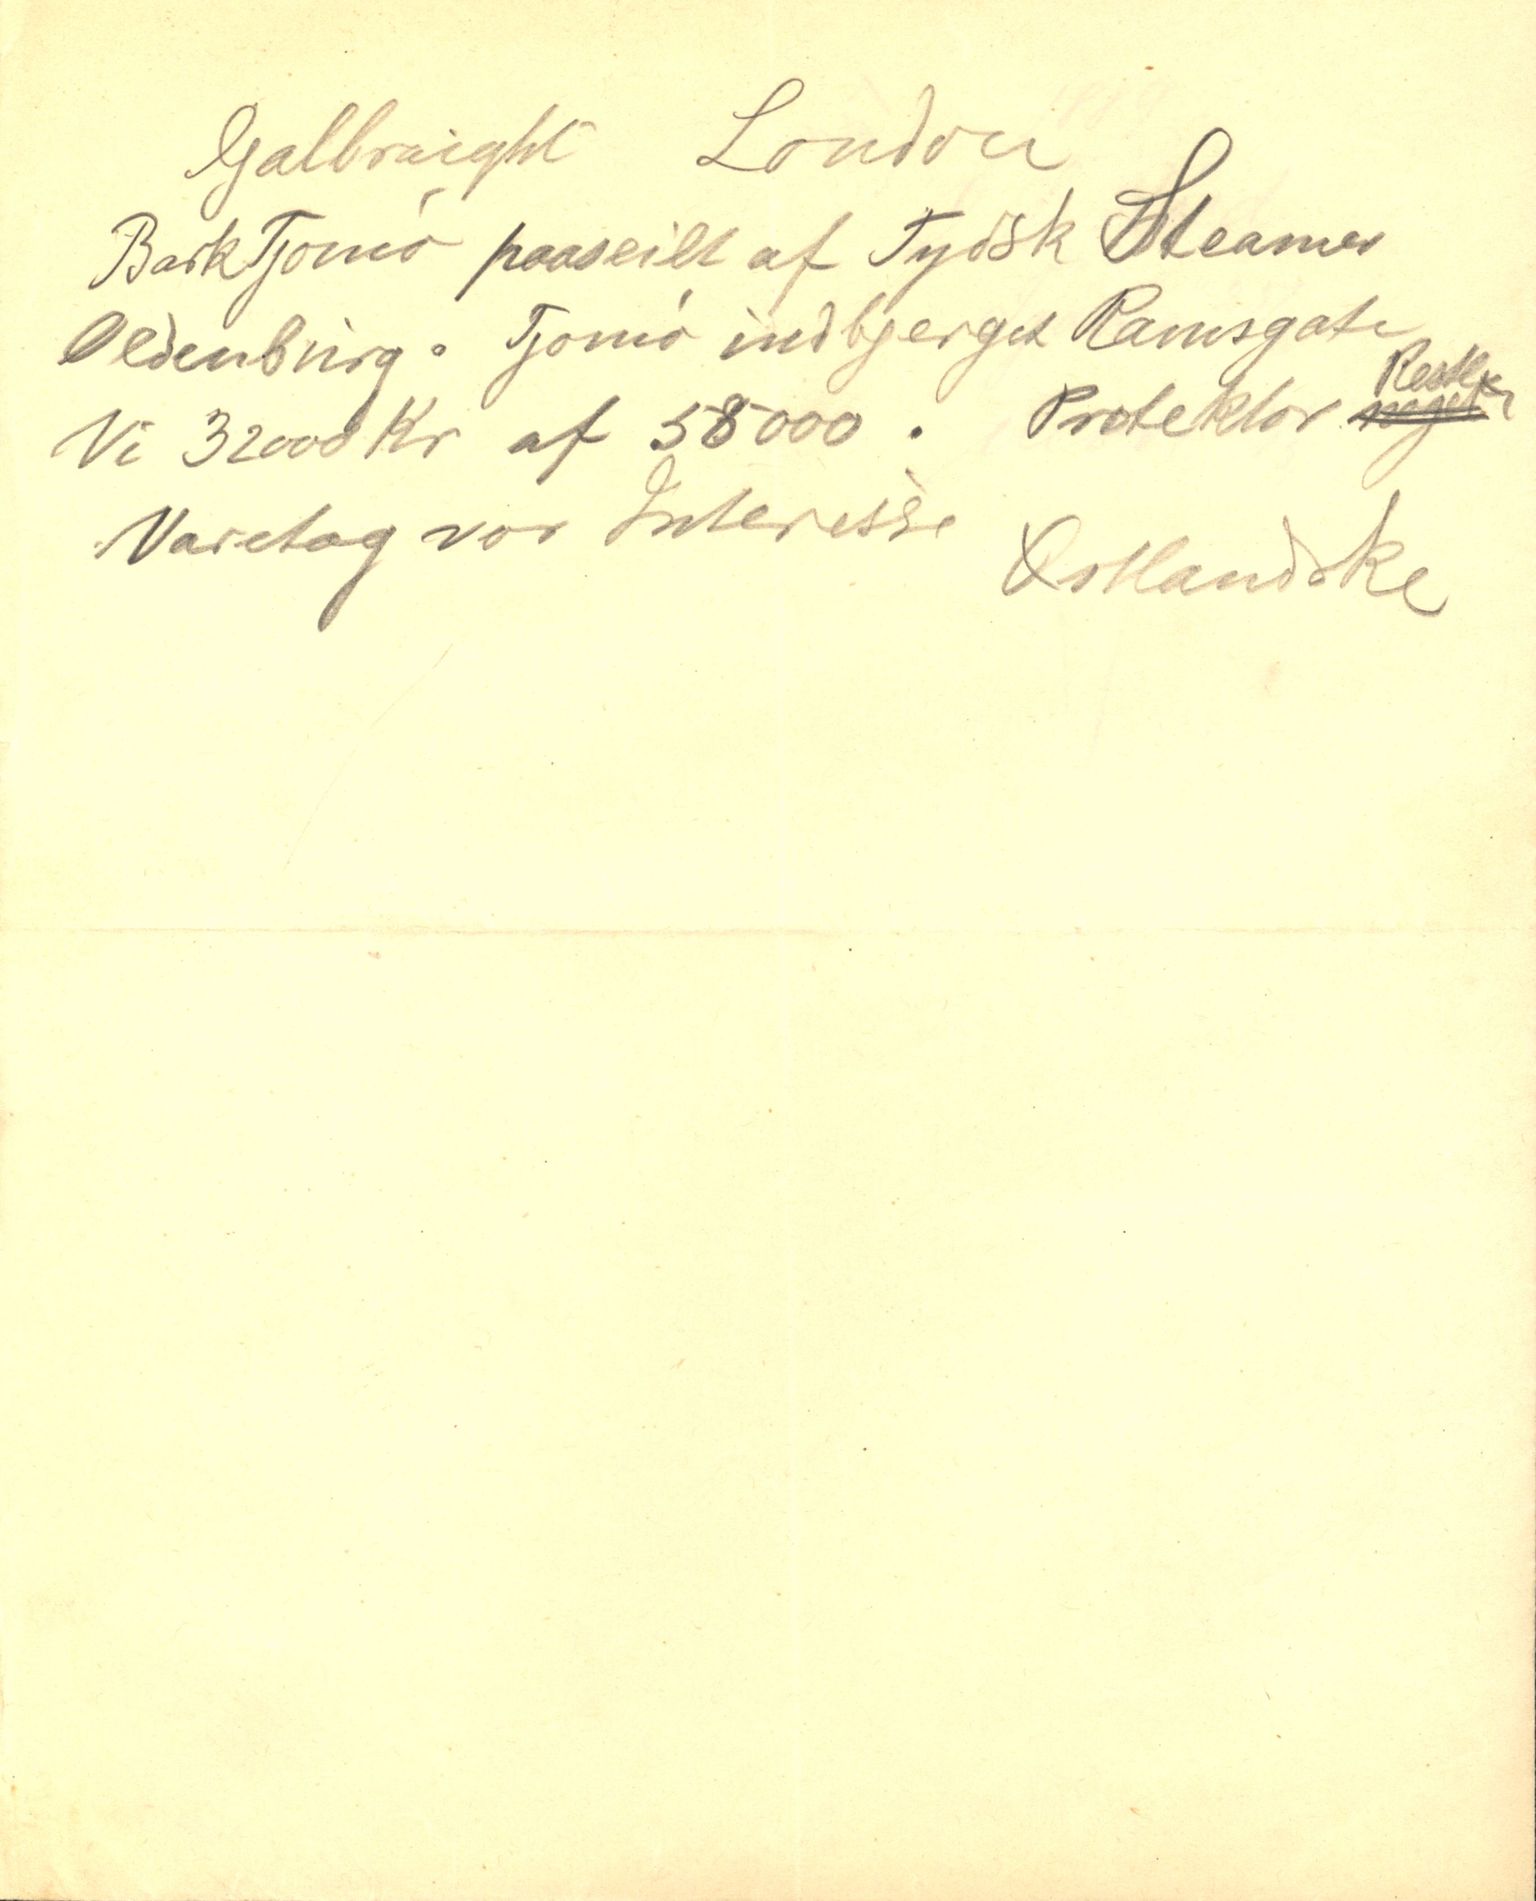 Galbraight London
Bark Tjomó paaseilt af Tydsk Steamer
Oldenburg. Tjomó indbjerget Ramsgate
Vi 32000 Kr af 58000. Protektor Resten
Varetag vor Interesse Østlandske